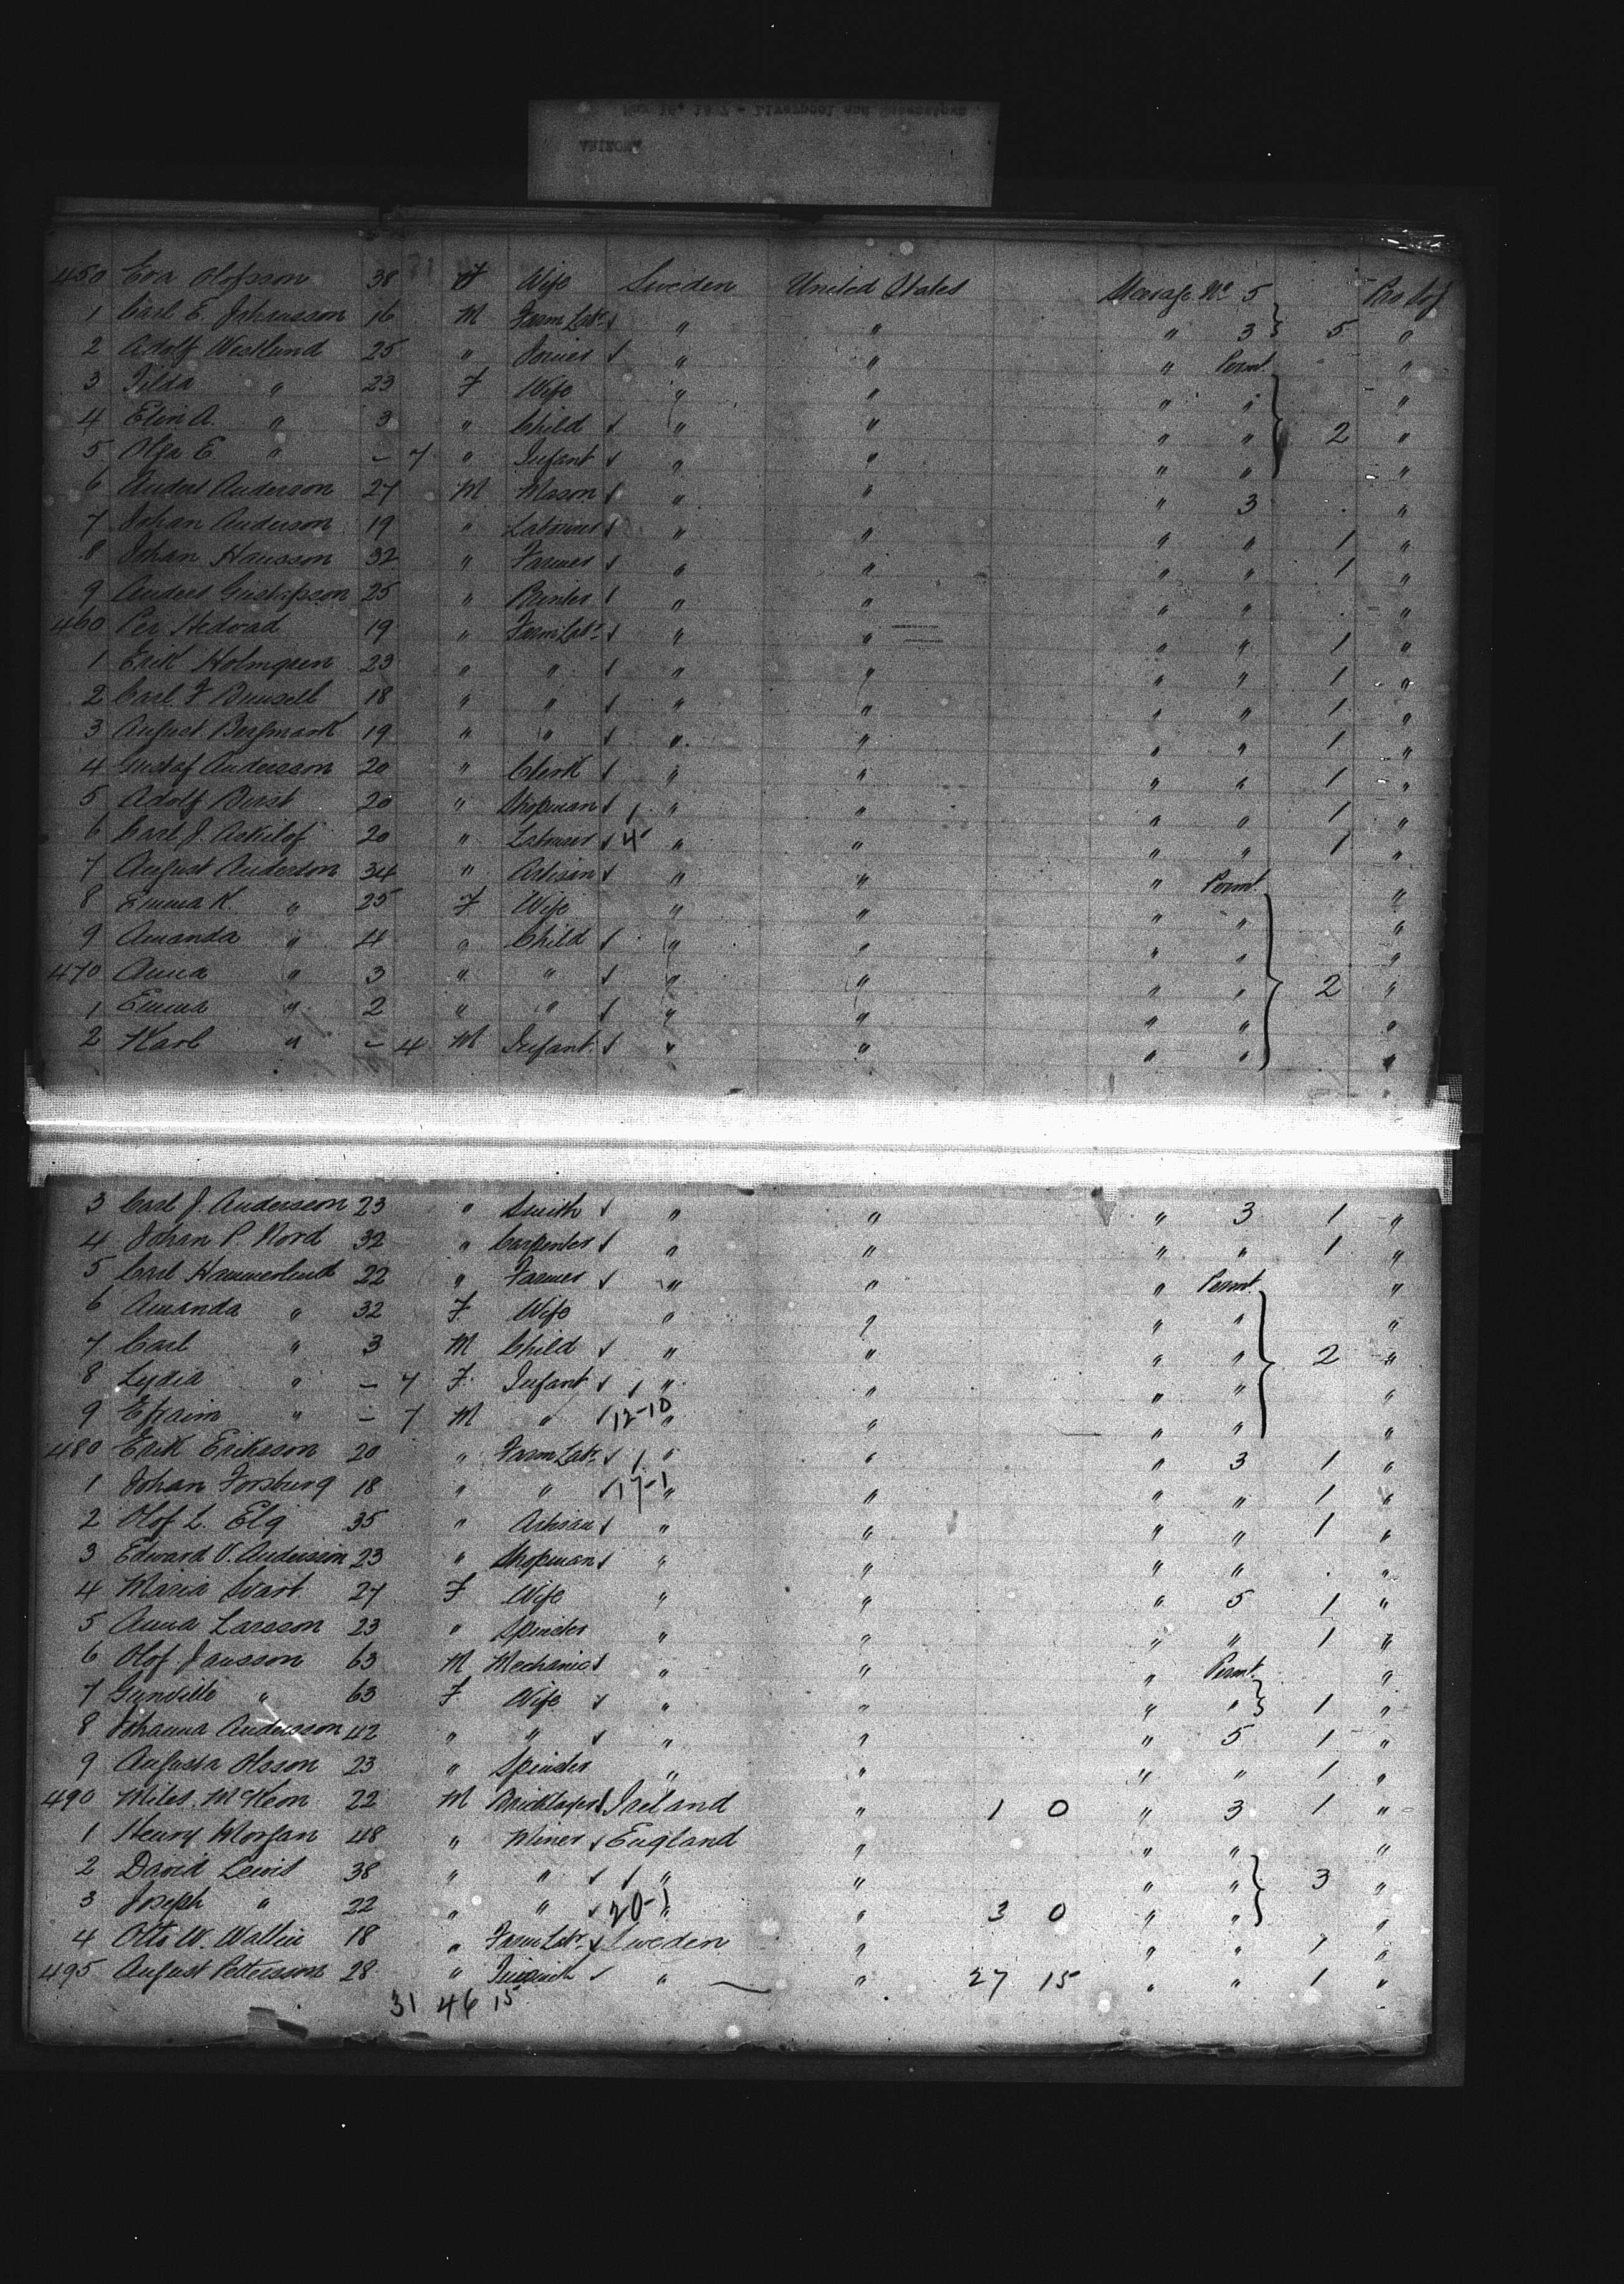 450 Eva Olofsson 38 F Wife Sweden United States Steerage No 5 Pro Suf
1 Carl E. Johansson 16 M Farm Labr " " " 3 5 "
2 Adolf Westlund 25 " " " " Permt "
3 Tilda " 23 F Wife " " " " "
4 Elin A. " 3 " Child " " " " 2 "
5 Olga E. " - 7 " Infant " " " " "
6 Anders Anderson 27 M Mason " " " 3 "
7 Johan Anderson 19 " Labourer " " " " 1 "
8 Johan Hansson 32 " Farmer " " " " 1 "
9 Anders Gustafsson 25 " " " " " "
460 Per Hedvad 19 " Farm Labr " " " " 1 "
1 Erik Holmgren 23 " " " " " " 1 "
2 Carl F 18 " " " " " " 1 "
3 August Bergmark 19 " " " " " " 1 "
4 Gustaf Andersson 20 " Clerk " " " " 1 "
5 Adolf 20 " Shopman " " " " 1 "
6 Carl J. 20 " Labourer 4 " " " " 1 "
7 August Anderson 34 " Artisan " " " Permt "
8 Emma K. " 25 F Wife " " " " "
9 Amanda " 4 " Child " " " " "
470 Anna " 3 " " " " " " 2 "
1 Emma " 2 " " " " " " "
2 Karl " - 4 M Infant " " " " "
3 Carl J. Anderson 23 " Smith " " " 3 1 "
4 Johan P. Nord 32 " Carpenter " " " " 1 "
5 Carl Hammerlund 22 " Farmer " " " Permt "
6 Amanda " 32 F Wife " " " " "
7 Carl " 3 M Child " " " " 2 "
8 Lydia " - 7 F Infant " " " " "
9 Efraim " - 7 M " 12-10 " " " " "
480 Erik Eriksson 20 " Farm Labr " " " 3 1 "
1 Johan Forsburg 18 " " 17-1 " " " " 1 "
2 Olof L. Elg 35 " Artisan " " " " 1 "
3 Edward V. Anderson 23 " Shopman " " " " "
4 Maria Svart 27 F Wife " " " 5 1 "
5 Anna Larsson 23 " Spinster " " " " 1 "
6 Olof Jansson 63 M Mechanic " " " Permt "
7 " 63 F Wife " " " " 1 "
8 Johanna Andersson 42 " " " " " 5 1 "
9 Augusta Olsson 23 " Spinster " " " " 1 "
490 Miles McKeon 22 M Bricklayer Ireland " 1 0 " 3 1 "
1 Henry Morgan 48 " Miner England " " " "
2 David Lewis 38 " " " " " " 3 "
3 Joseph " 22 " " 20-1 " " 3 0 " " "
4 Otto W. Wallin 18 " Farm Labr Sweden " " " 1 "
495 August Petersson 28 " " " 27 15 " " 1 "
31 46 15